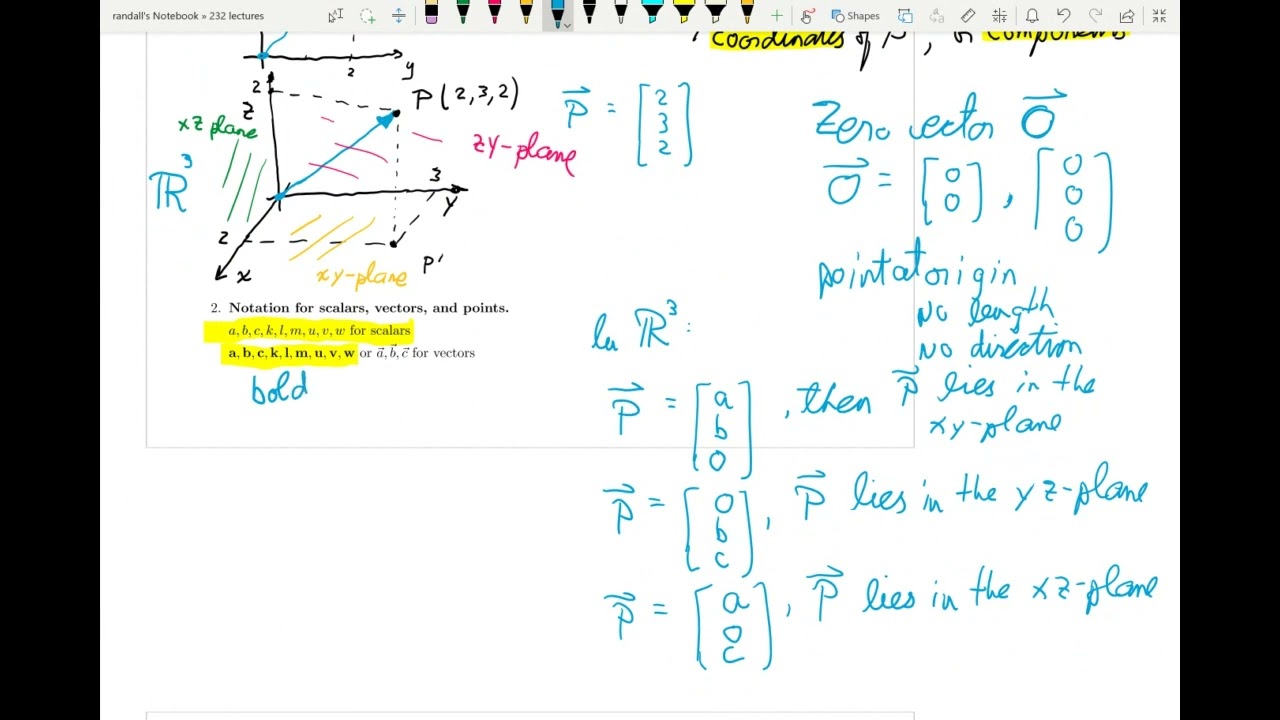 randall's Notebook » 232 lectures
Shapes
coordinates of P, or components
2
y
2
z
P(2,3,2)
xz plane
zy-plane
ℝ³
3
y
2
x
xy-plane
P'
P⃗ = [2 3 2]
Zero vector O⃗
O⃗ = [0 0], [0 0 0]
point at origin
No length
No direction
2. Notation for scalars, vectors, and points.
a, b, c, k, l, m, u, v, w for scalars
a, b, c, k, l, m, u, v, w or a⃗, b⃗, c⃗ for vectors
bold
In ℝ³:
P⃗ = [a b 0], then P⃗ lies in the
xy-plane
P⃗ = [0 b c], P⃗ lies in the yz-plane
P⃗ = [a 0 c], P⃗ lies in the xz-plane